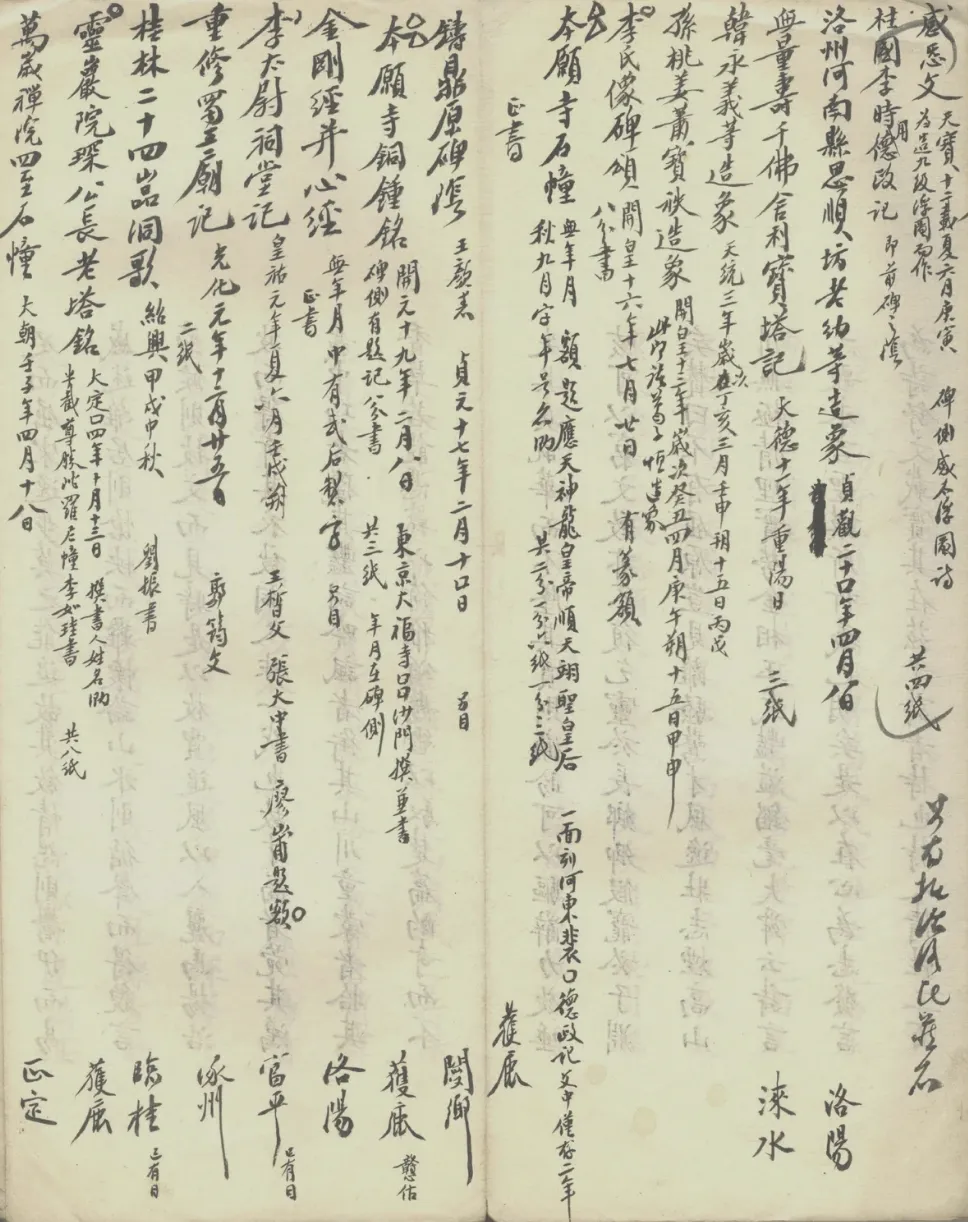 感怨文 天寶十二載夏六月庚寅 為造九級浮圖而作 碑側感石浮圖詩 共四紙
柱國李時用德政記 即前碑之陰
洛州河南縣思順坊老幼等造象 貞觀二十口年四月八日 洛陽
無量壽千佛舍利寶塔記 大德十一年重陽日 三紙 淶水
韓永義等造象 天統三年歲次在丁亥三月壬申朔十五日丙戌
孫桃姜蕭寶祑造象 開皇十三年歲次癸丑四月庚午朔十五日甲申
李氏像碑頌 開皇十六年七月廿日 有篆額 八分書
本願寺石幢 無年月 額題應天神龍皇帝順天翊聖皇后 一面刻河東裴口德政記文中僅存二年
秋九月字年号名泐 共二分一分六紙一分三紙
正書 獲鹿
鑄鼎原碑陰 王顏書 貞元十七年二月十口日 閿鄉
本願寺銅鍾銘 開元十九年二月八日 東京大福寺口口沙門撰並書 獲鹿
碑側有題記 八分書 共三紙 年月在碑側
金剛經并心經 無年月中有武后製字 洛陽
正書
李太尉祠堂記 皇祐元年夏六月壬戌朔 王晳文 張大中書 題額 富平 已有目
重修蜀王廟記 光化元年十二月廿五日 郭筠文 涿州
二紙
桂林二十四嵒洞歌 紹興甲戌中秋 劉振書 臨桂 已有目
靈巖院琛公長老塔銘 大定口四年十月十三日 撰書人姓名泐 獲鹿
半截尊勝陀羅尼幢李如珪書 共八紙
萬歲禪院四至石幢 大朝壬子年四月十八日 正定